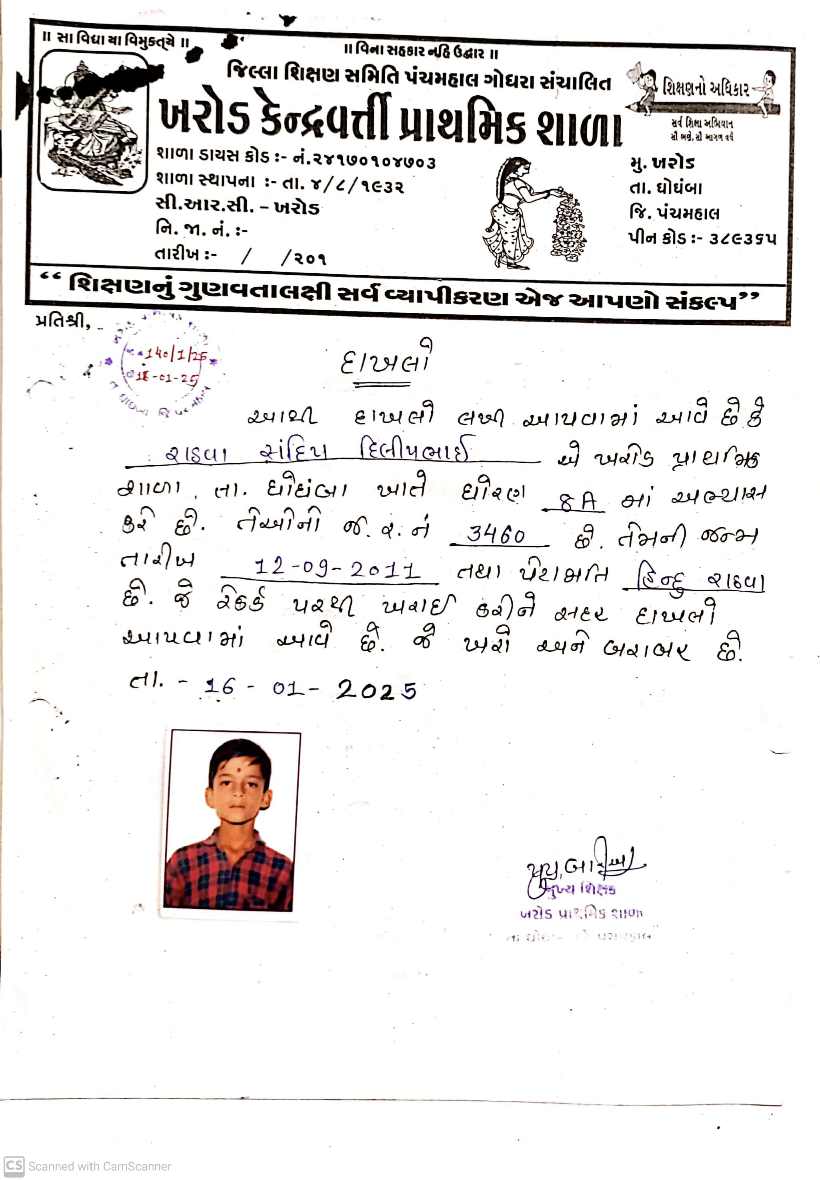 ॥ સા વિદ્યા યા વિમુક્તયે ॥
॥ વિના સહકાર નહિ ઉદ્ધાર ॥
જિલ્લા શિક્ષણ સમિતિ પંચમહાલ ગોધરા સંચાલિત
શિક્ષણનો અધિકાર
ખરોડ કેન્દ્રવર્તી પ્રાથમિક શાળા
સર્વ શિક્ષા અભિયાન
સૌ ભણે, સૌ આગળ વધે
શાળા ડાયસ કોડ :- નં.૨૪૧૭૦૧૦૪૭૦૩
શાળા સ્થાપના :- તા. ૪/૮/૧૯૩૨
સી.આર.સી. – ખરોડ
નિ. જા. નં. :-
તારીખ :- / /૨૦૧
મુ. ખરોડ
તા. ઘોઘંબા
જિ. પંચમહાલ
પીન કોડ :- ૩૮૯૩૬૫
“ શિક્ષણનું ગુણવતાલક્ષી સર્વ વ્યાપીકરણ એજ આપણો સંકલ્પ”
પ્રતિશ્રી,
140/1/25
16-01-25
દાખલો
આથી દાખલો લખી આપવામાં આવે છે કે
રાઠવા સંદિપ દિલીપભાઈ એ ખરોડ પ્રાથમિક
શાળા, તા. ઘોઘંબા ખાતે ધોરણ 8A માં અભ્યાસ
કરે છે. તેઓની જ. ર. નં 3460 છે. તેમની જન્મ
તારીખ 12-09-2011 તથા પેટાજાતિ હિન્દુ રાઠવા
છે. જે રેકર્ડ પરથી ખરાઈ કરીને સદર દાખલો
આપવામાં આવે છે. જે ખરો અને બરાબર છે.
તા. - 16 - 01 - 2025
મુખ્ય શિક્ષક
ખરોડ પ્રાથમિક શાળા
CS Scanned with CamScanner